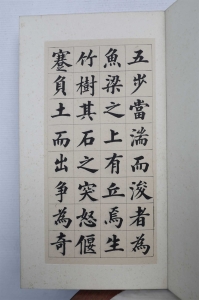 五步當湍而浚者為
魚梁梁之上有丘焉生
竹樹其石之突怒偃
蹇負土而出爭為奇